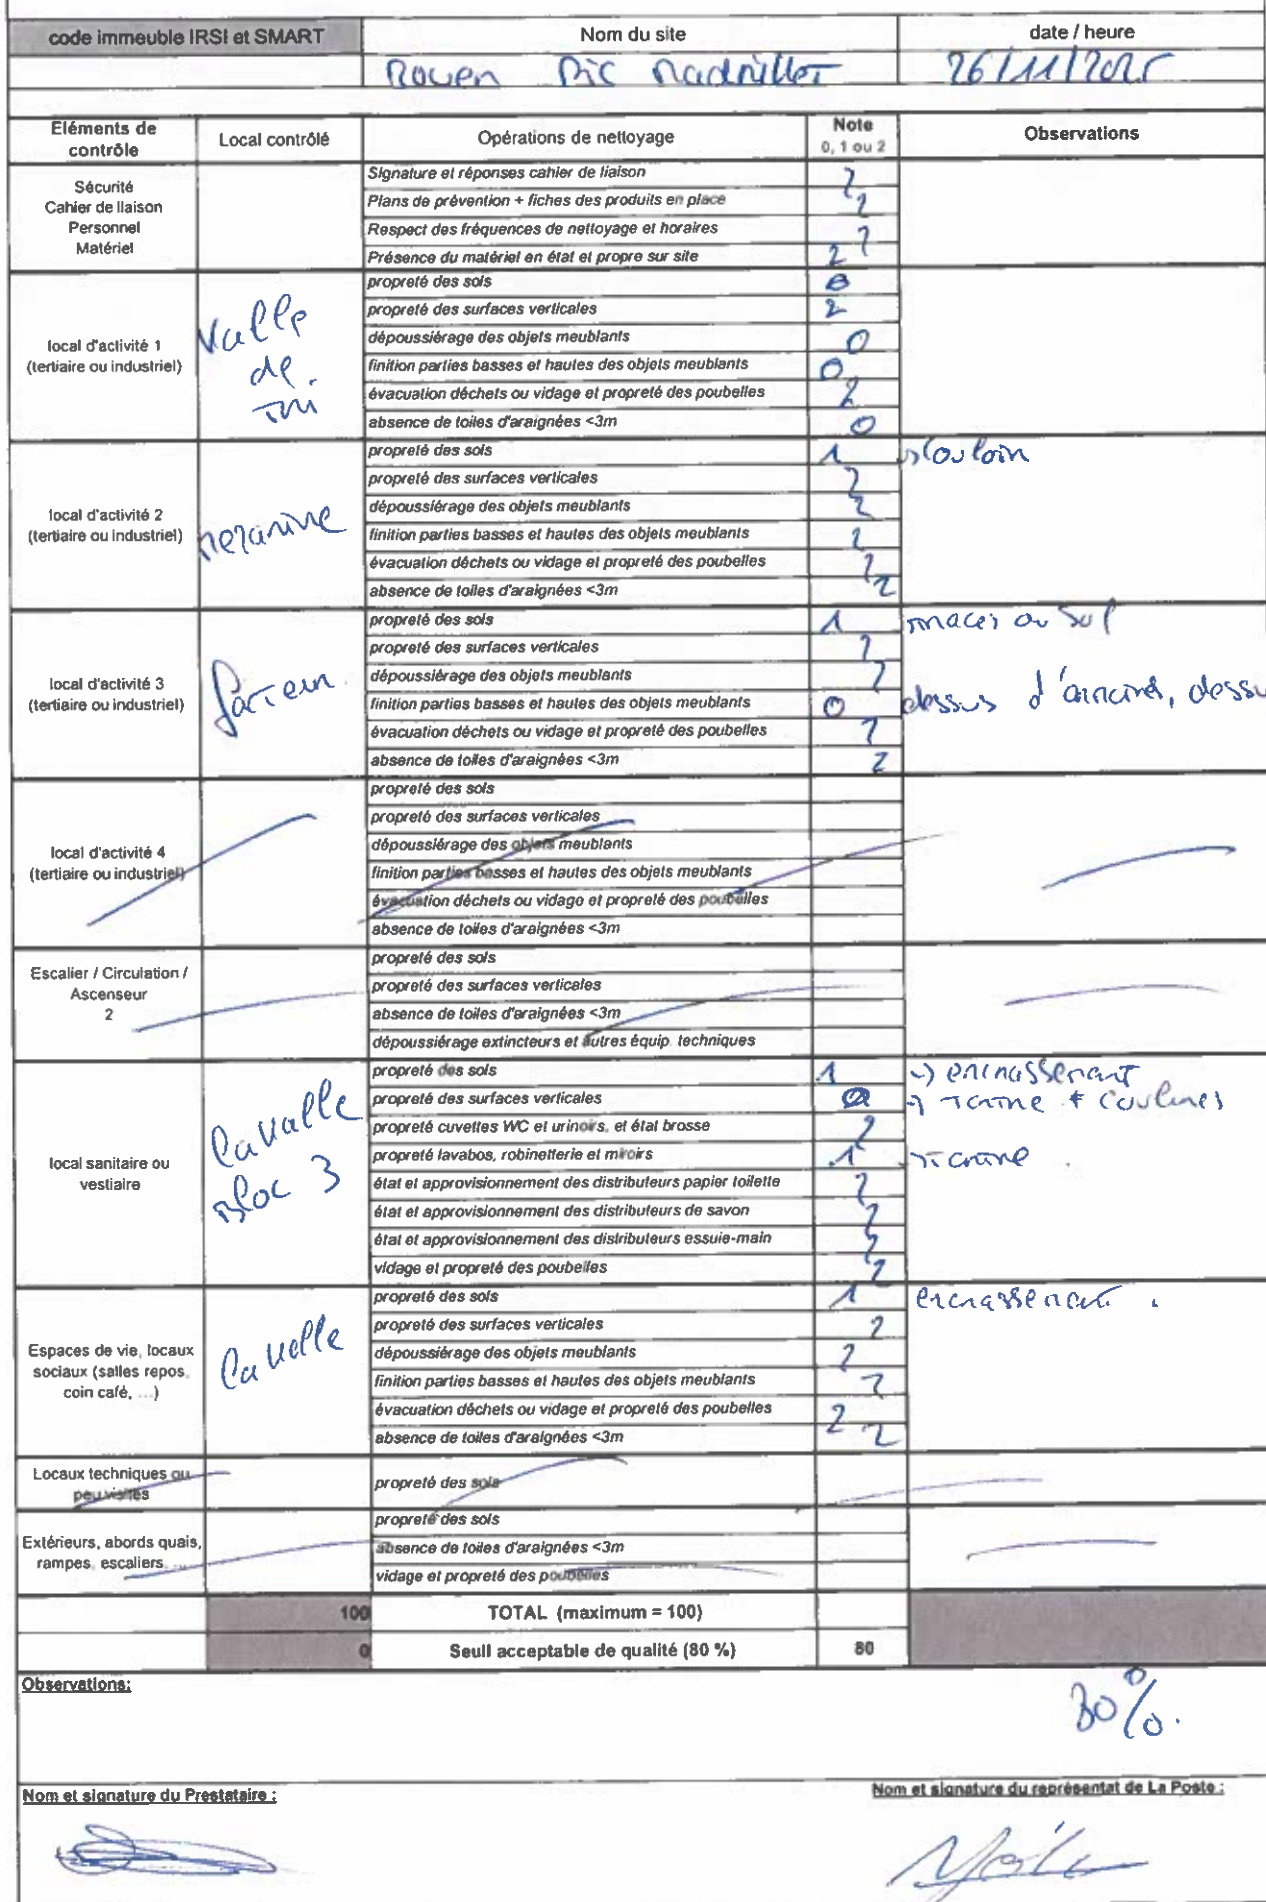 code immeuble IRSI et SMART Nom du site date / heure
Rouen Pic Madrillet 26/11/2025
Eléments de contrôle Local contrôlé Opérations de nettoyage Note 0, 1 ou 2 Observations
Sécurité
Cahier de liaison
Personnel
Matériel
Signature et réponses cahier de liaison 2
Plans de prévention + fiches des produits en place 2
Respect des fréquences de nettoyage et horaires 2
Présence du matériel en état et propre sur site 2
local d'activité 1
(tertiaire ou industriel)
de
Tri
propreté des sols 0
propreté des surfaces verticales 2
dépoussiérage des objets meublants 0
finition parties basses et hautes des objets meublants 0
évacuation déchets ou vidage et propreté des poubelles 2
absence de toiles d'araignées <3m 0
local d'activité 2
(tertiaire ou industriel)
mezanine
propreté des sols 1
propreté des surfaces verticales 2
dépoussiérage des objets meublants 2
finition parties basses et hautes des objets meublants 2
évacuation déchets ou vidage et propreté des poubelles 2
absence de toiles d'araignées <3m 2
local d'activité 3
(tertiaire ou industriel)
facteur
propreté des sols 1 traces au sol
propreté des surfaces verticales 2
dépoussiérage des objets meublants 2
finition parties basses et hautes des objets meublants 0 dessus d'armoires, dessu
évacuation déchets ou vidage et propreté des poubelles 2
absence de toiles d'araignées <3m 2
local d'activité 4
(tertiaire ou industriel)
propreté des sols
propreté des surfaces verticales
dépoussiérage des objets meublants
finition parties basses et hautes des objets meublants
évacuation déchets ou vidage et propreté des poubelles
absence de toiles d'araignées <3m
Escalier / Circulation /
Ascenseur
2
propreté des sols
propreté des surfaces verticales
absence de toiles d'araignées <3m
dépoussiérage extincteurs et autres équip. techniques
local sanitaire ou
vestiaire
Bloc 3
propreté des sols 1 -> encrassement
propreté des surfaces verticales -> + coulures
propreté cuvettes WC et urinoirs, et état brosse 2
propreté lavabos, robinetterie et miroirs 1
état et approvisionnement des distributeurs papier toilette 2
état et approvisionnement des distributeurs de savon 2
état et approvisionnement des distributeurs essuie-main 2
vidage et propreté des poubelles 2
Espaces de vie, locaux
sociaux (salles repos,
coin café, ...)
propreté des sols 1 encrassement.
propreté des surfaces verticales 2
dépoussiérage des objets meublants 2
finition parties basses et hautes des objets meublants 2
évacuation déchets ou vidage et propreté des poubelles 2
absence de toiles d'araignées <3m 2
Locaux techniques ou
peu visités
propreté des sols
Extérieurs, abords quais,
rampes, escaliers, ...
propreté des sols
absence de toiles d'araignées <3m
vidage et propreté des poubelles
100 TOTAL (maximum = 100)
0 Seuil acceptable de qualité (80 %) 80
Observations:
80%.
Nom et signature du Prestataire :
Nom et signature du représentat de La Poste :